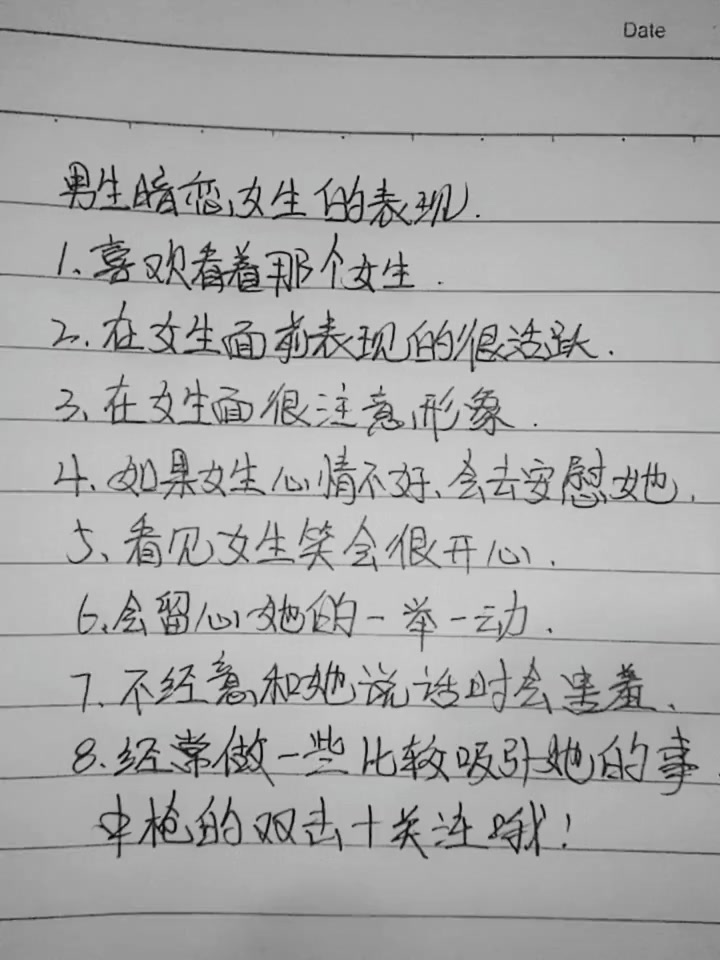 Date
男生暗恋女生的表现.
1、喜欢看着那个女生.
2、在女生面前表现的很活跃.
3、在女生面很注意形象.
4、如果女生心情不好、会去安慰她.
5、看见女生笑会很开心.
6、会留心她的一举一动.
7、不经意和她说话时会害羞、
8、经常做一些比较吸引她的事.
中枪的双击十关注哦!